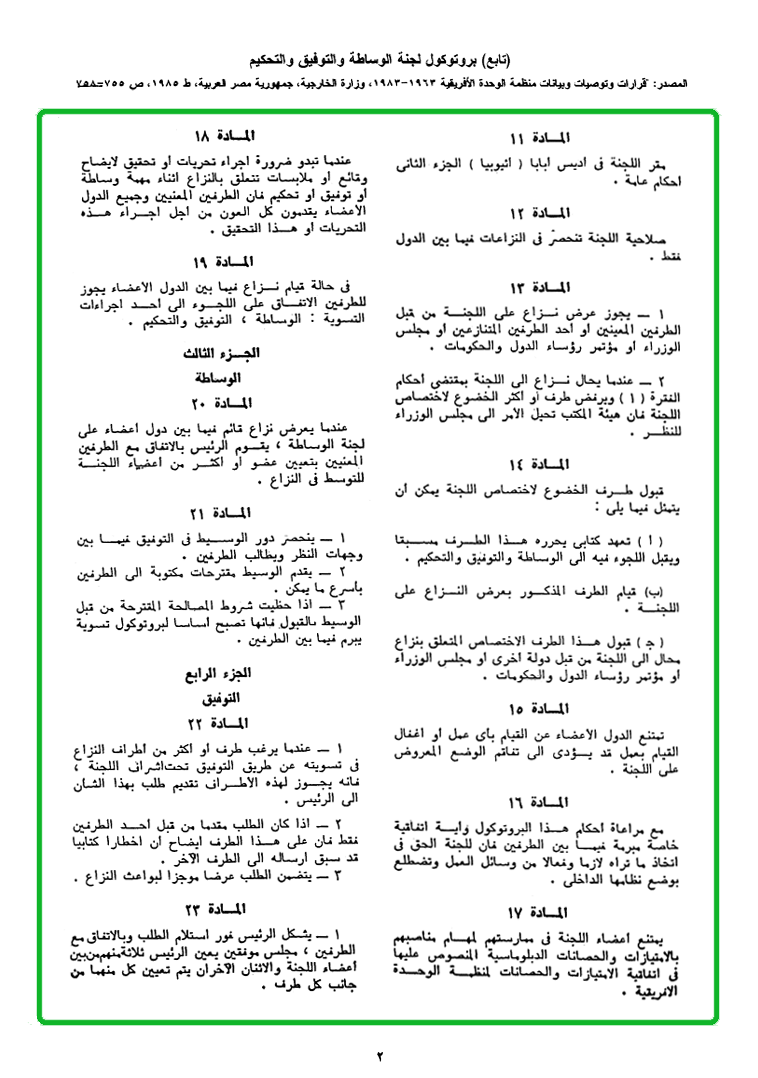 (تابع) بروتوكول لجنة الوساطة والتوفيق والتحكيم
المصدر: "قرارات وتوصيات وبيانات منظمة الوحدة الأفريقية ١٩٦٣-١٩٨٣، وزارة الخارجية، جمهورية مصر العربية، ط ١٩٨٥، ص ٧٥٥-
المـادة ١١
مقر اللجنة فى اديس ابابا ( اثيوبيا ) الجزء الثانى
احكام عامة .
المـادة ١٢
صلاحية اللجنة تنحصر فى النزاعات فيما بين الدول
فقط .
المـادة ١٣
١ ــ يجوز عرض نـزاع على اللجنـة من قبل
الطرفين المعينين أو أحد الطرفين المتنازعين أو مجلس
الوزراء أو مؤتمر رؤساء الدول والحكومات .
٢ ــ عندما يحال نـزاع الى اللجنة بمقتضى أحكام
الفقرة ( ١ ) ويرفض طرف أو أكثر الخضوع لاختصاص
اللجنة فان هيئة المكتب تحيل الأمر الى مجلس الوزراء
للنظـر .
المـادة ١٤
قبول طـرف الخضوع لاختصاص اللجنة يمكن أن
يتمثل فيما يلى :
( أ ) تعهد كتابى يحرره هـذا الطـرف مسـبقا
ويقبل اللجوء فيه الى الوساطة والتوفيق والتحكيم .
(ب) قيام الطرف المذكـور بعرض النـزاع على
اللجنـة .
( جـ ) قبول هـذا الطرف الاختصاص المتعلق بنزاع
محال الى اللجنة من قبل دولة أخرى أو مجلس الوزراء
أو مؤتمر رؤساء الدول والحكومات .
المـادة ١٥
تمتنع الدول الأعضاء عن القيام بأى عمل أو اغفال
القيام بعمل قد يـؤدى الى تفاقم الوضع المعروض
على اللجنة .
المـادة ١٦
مع مراعاة أحكام هـذا البروتوكول وأية اتفاقية
خاصة مبرمة فيمـا بين الطرفين فان للجنة الحق فى
اتخاذ ما تراه لازما وفعالا من وسائل العمل وتضطلع
بوضع نظامها الداخلى .
المـادة ١٧
يمتنع أعضاء اللجنة فى ممارستهم لمهـام مناصبهم
بالامتيازات والحصانات الدبلوماسية المنصوص عليها
فى اتفاقية الامتيازات والحصانات لمنظمـة الوحـدة
الافريقية .
المـادة ١٨
عندما تبدو ضرورة اجراء تحريات أو تحقيق لايضاح
وقائع أو ملابسات تتعلق بالنزاع أثناء مهمة وساطة
أو توفيق أو تحكيم فان الطرفين المعنيين وجميع الدول
الأعضاء يقدمون كل العون من أجل اجـراء هـذه
التحريات أو هـذا التحقيق .
المـادة ١٩
فى حالة قيام نـزاع فيما بين الدول الأعضاء يجوز
للطرفين الاتفـاق على اللجـوء الى أحـد اجراءات
التسوية : الوساطة ، التوفيق والتحكيم .
الجـزء الثالث
الوساطة
المـادة ٢٠
عندما يعرض نزاع قائم فيما بين دول أعضاء على
لجنة الوساطة ، يقـوم الرئيس بالاتفاق مع الطرفين
المعنيين بتعيين عضو أو أكثـر من أعضاء اللجنـة
للتوسط فى النزاع .
المـادة ٢١
١ ــ ينحصر دور الوسـيط فى التوفيق فيمـا بين
وجهات النظر ويطالب الطرفين .
٢ ــ يقدم الوسيط مقترحات مكتوبة الى الطرفين
بأسرع ما يمكن .
٣ ــ اذا حظيت شروط المصالحة المقترحة من قبل
الوسيط بالقبول فانها تصبح أساسا لبروتوكول تسوية
يبرم فيما بين الطرفين .
الجزء الرابع
التوفيق
المـادة ٢٢
١ ــ عندما يرغب طرف أو أكثر من أطراف النزاع
فى تسويته عن طريق التوفيق تحت اشراف اللجنة ،
فانه يجـوز لهذه الأطـراف تقديم طلب بهذا الشأن
الى الرئيس .
٢ ــ اذا كان الطلب مقدما من قبل أحـد الطرفين
فقط فان على هـذا الطرف ايضاح أن اخطارا كتابيا
قد سبق ارساله الى الطرف الآخر .
٣ ــ يتضمن الطلب عرضا موجزا لبواعث النزاع .
المـادة ٢٣
١ ــ يشكل الرئيس فور استلام الطلب وبالاتفاق مع
الطرفين ، مجلس موفقين يعين الرئيس ثلاثة منهم من بين
أعضاء اللجنة والاثنان الآخران يتم تعيين كل منهما من
جانب كل طرف .
٢